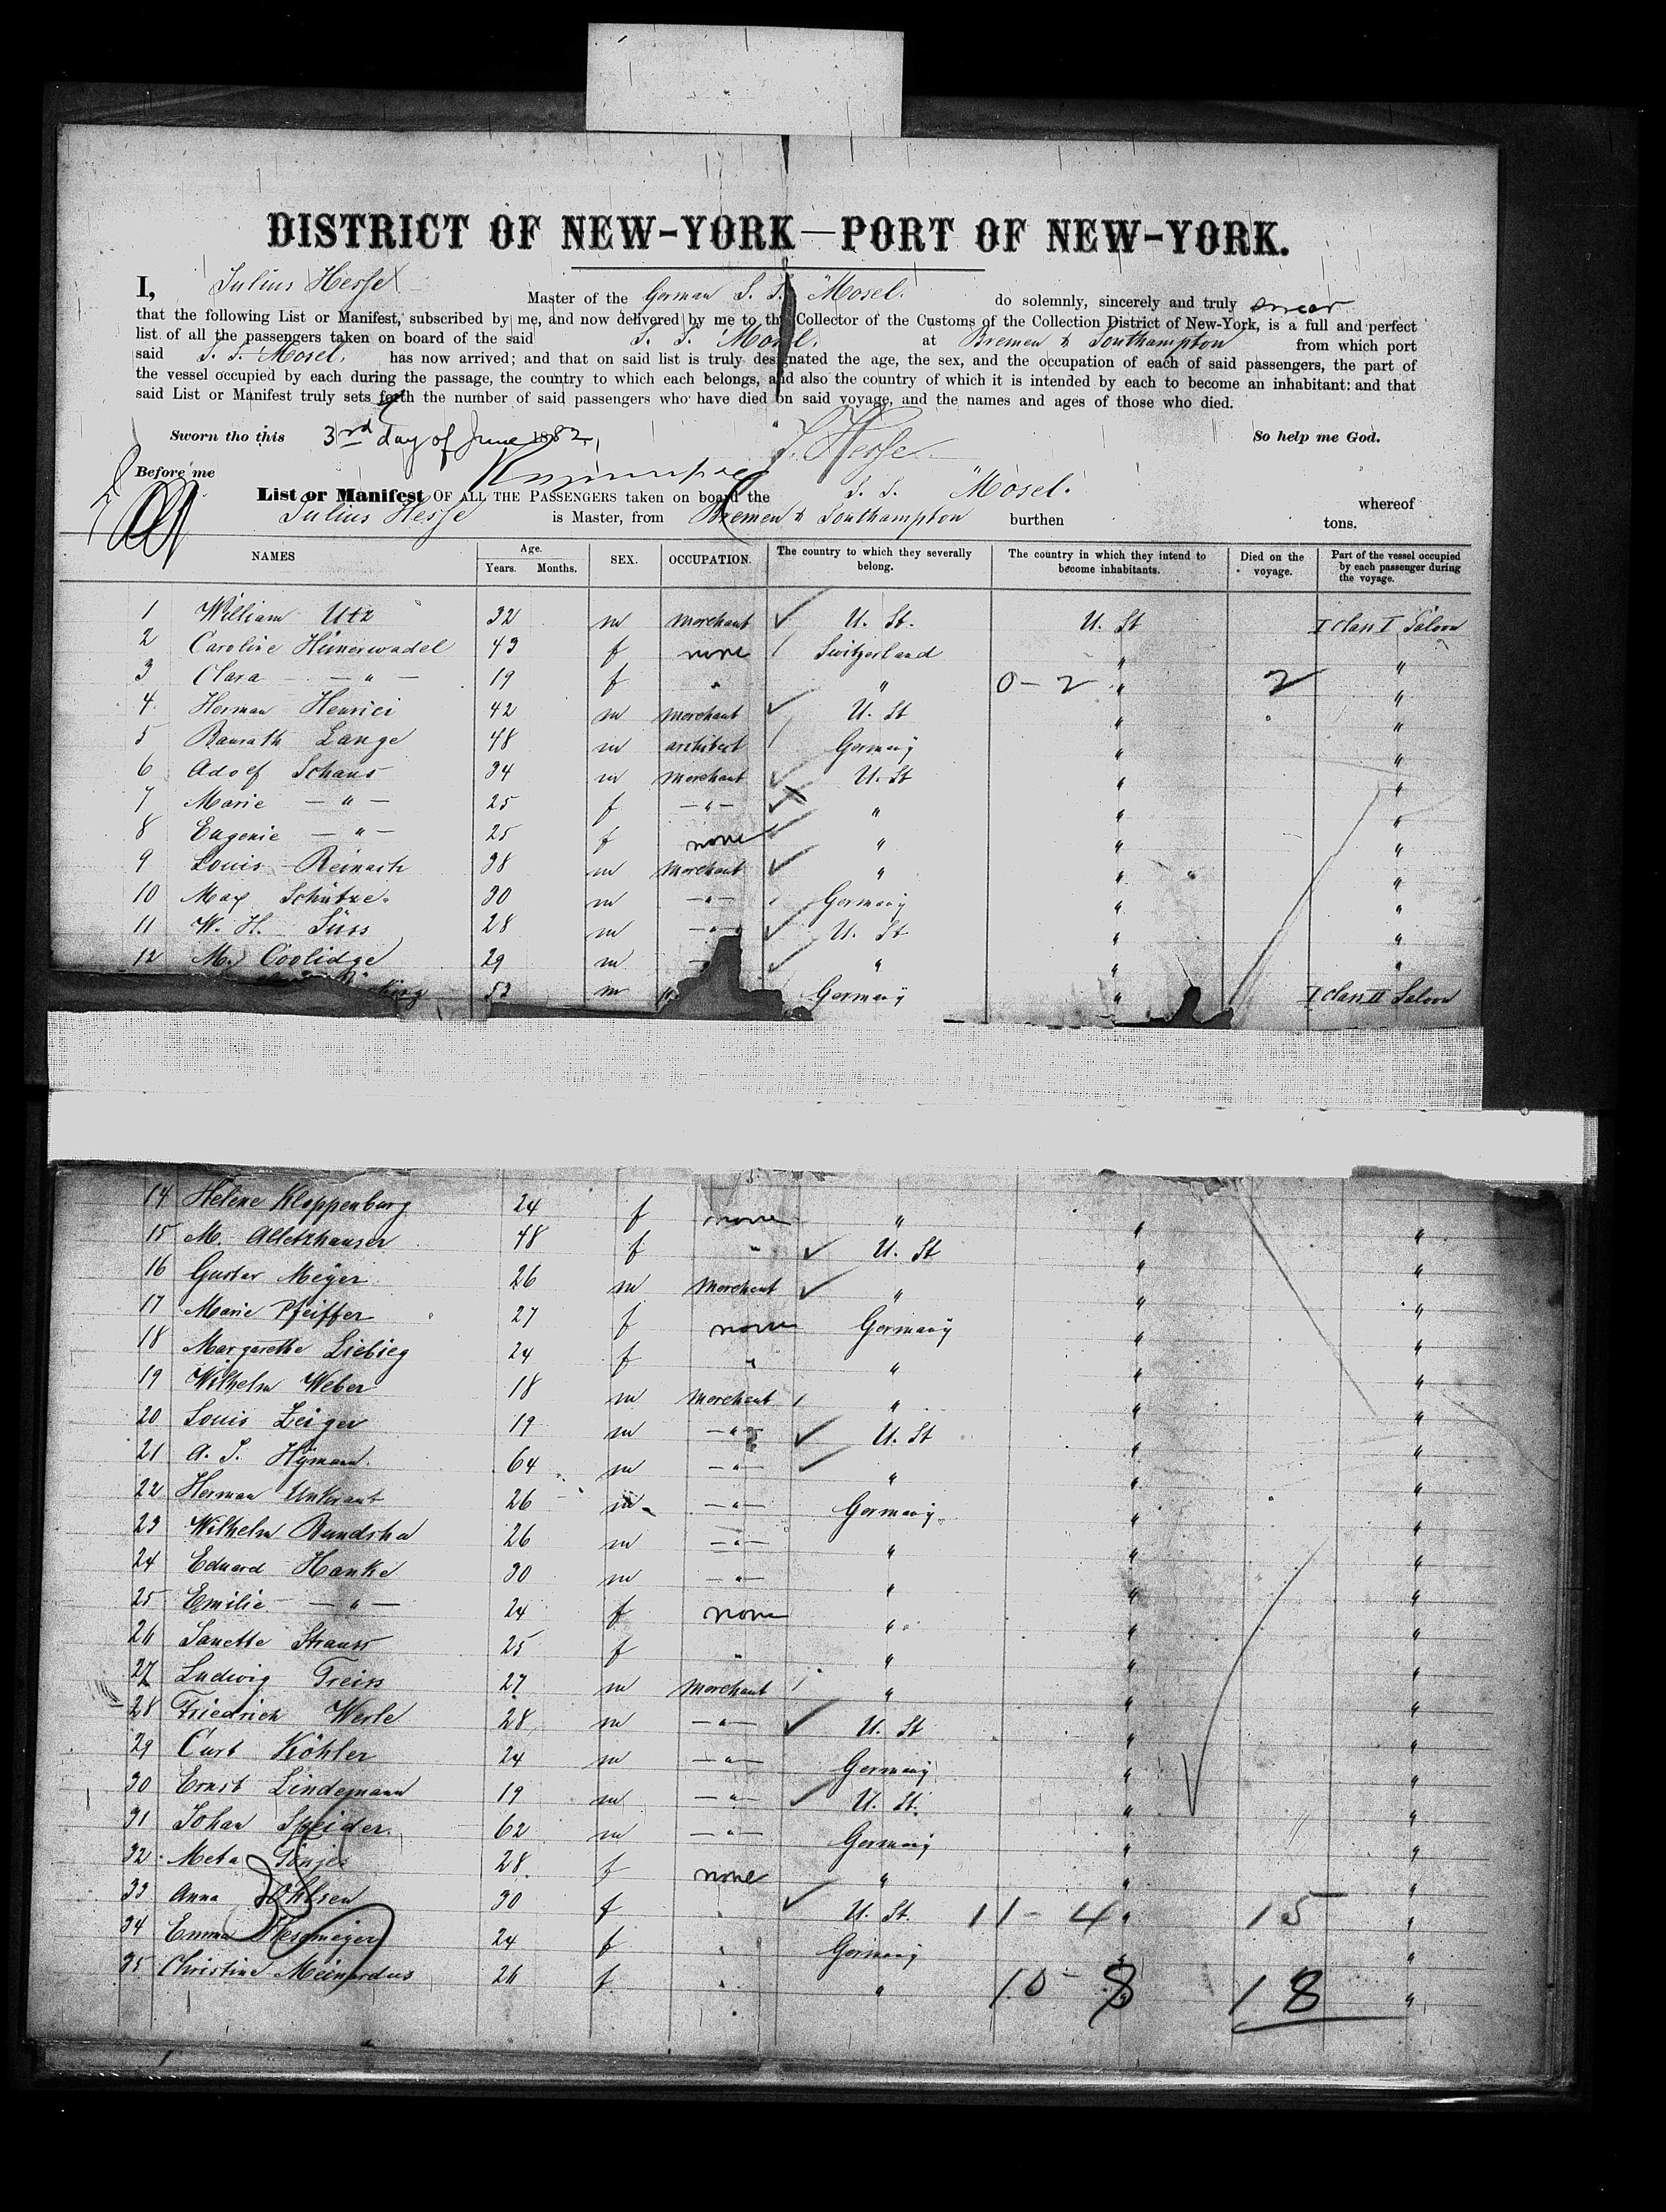 DISTRICT OF NEW-YORK—PORT OF NEW-YORK.
I, Julius Hesse Master of the German S. S. "Mosel. do solemnly, sincerely and truly swear
that the following List or Manifest, subscribed by me, and now delivered by me to the Collector of the Customs of the Collection District of New-York, is a full and perfect
list of all the passengers taken on board of the said S. S. Mosel. at Bremen & Southampton from which port
said S. S. Mosel. has now arrived; and that on said list is truly designated the age, the sex, and the occupation of each of said passengers, the part of
the vessel occupied by each during the passage, the country to which each belongs, and also the country of which it is intended by each to become an inhabitant: and that
said List or Manifest truly sets forth the number of said passengers who have died on said voyage, and the names and ages of those who died.
Sworn tho this 3rd day of June 1882, J. Hesse So help me God.
Before me
List or Manifest OF ALL THE PASSENGERS taken on board the S. S. Mosel. whereof
Julius Hesse is Master, from Bremen & Southampton burthen tons.
NAMES Age. Years. Months. SEX. OCCUPATION. The country to which they severally belong. The country in which they intend to become inhabitants. Died on the voyage. Part of the vessel occupied by each passenger during the voyage.
1 William Utz 32 m merchant U. St. U. St I class I Saloon
2 Caroline Hünerwadel 43 f none Switzerland " "
3 Clara — " — 19 f " " 0-2 " 2 "
4 Herman Henrici 42 m merchant U. St " "
5 Baurath Lange 48 m architect Germany " "
6 Adolf Schaus 34 m merchant U. St " "
7 Marie — " — 25 f — " — " " "
8 Eugenie — " — 25 f none " " "
9 Louis Reinach 38 m merchant " " "
10 Max Schütze 30 m — " — Germany " "
11 W. H. Süss 28 m — " — U. St " "
12 M. Coolidge 29 m " " "
53 m Germany " I class II Saloon
14 Helene Kloppenburg 24 f none " " "
15 M. Alletzhauser 48 f " U. St " "
16 Gustav Meyer 26 m merchant " " "
17 Marie Pfeiffer 27 f none Germany " "
18 Margarethe Liebieg 24 f " " " "
19 Wilhelm Weber 18 m merchant " " "
20 Louis Zeiger 19 m — " — U. St " "
21 A. S. Hyman 64 m — " — " " "
22 Herman Unkraut 26 m — " — Germany " "
23 Wilhelm Bundshu 26 m — " — " " "
24 Eduard Hanke 30 m — " — " " "
25 Emilie — " — 24 f none " " "
26 Janette Strauss 25 f " " " "
27 Ludwig Treiss 27 m merchant " " "
28 Friedrich Werle 28 m — " — U. St " "
29 Curt Köhler 24 m — " — Germany " "
30 Ernst Lindemann 19 m — " — U. St. " "
31 Johan 62 m — " — Germany " "
32 Meta Tönjes 28 f none " " "
33 Anna 30 f " U. St. 11-4 " 15 "
34 Emma 24 f " Germany " "
35 Christine Meinardus 26 f " " 10-8 " 18 "